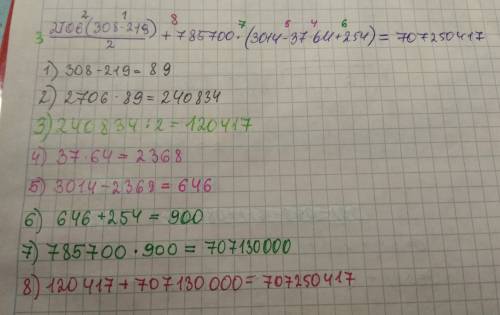 3 2706(308-219)/2 + 785700·(3014-37·64+254)=707250417
2 1 8 7 5 4 6
1) 308-219=89
2) 2706·89=240834
3) 240834:2=120417
4) 37·64=2368
5) 3014-2368=646
6) 646+254=900
7) 785700·900=707130000
8) 120417+707130000=707250417